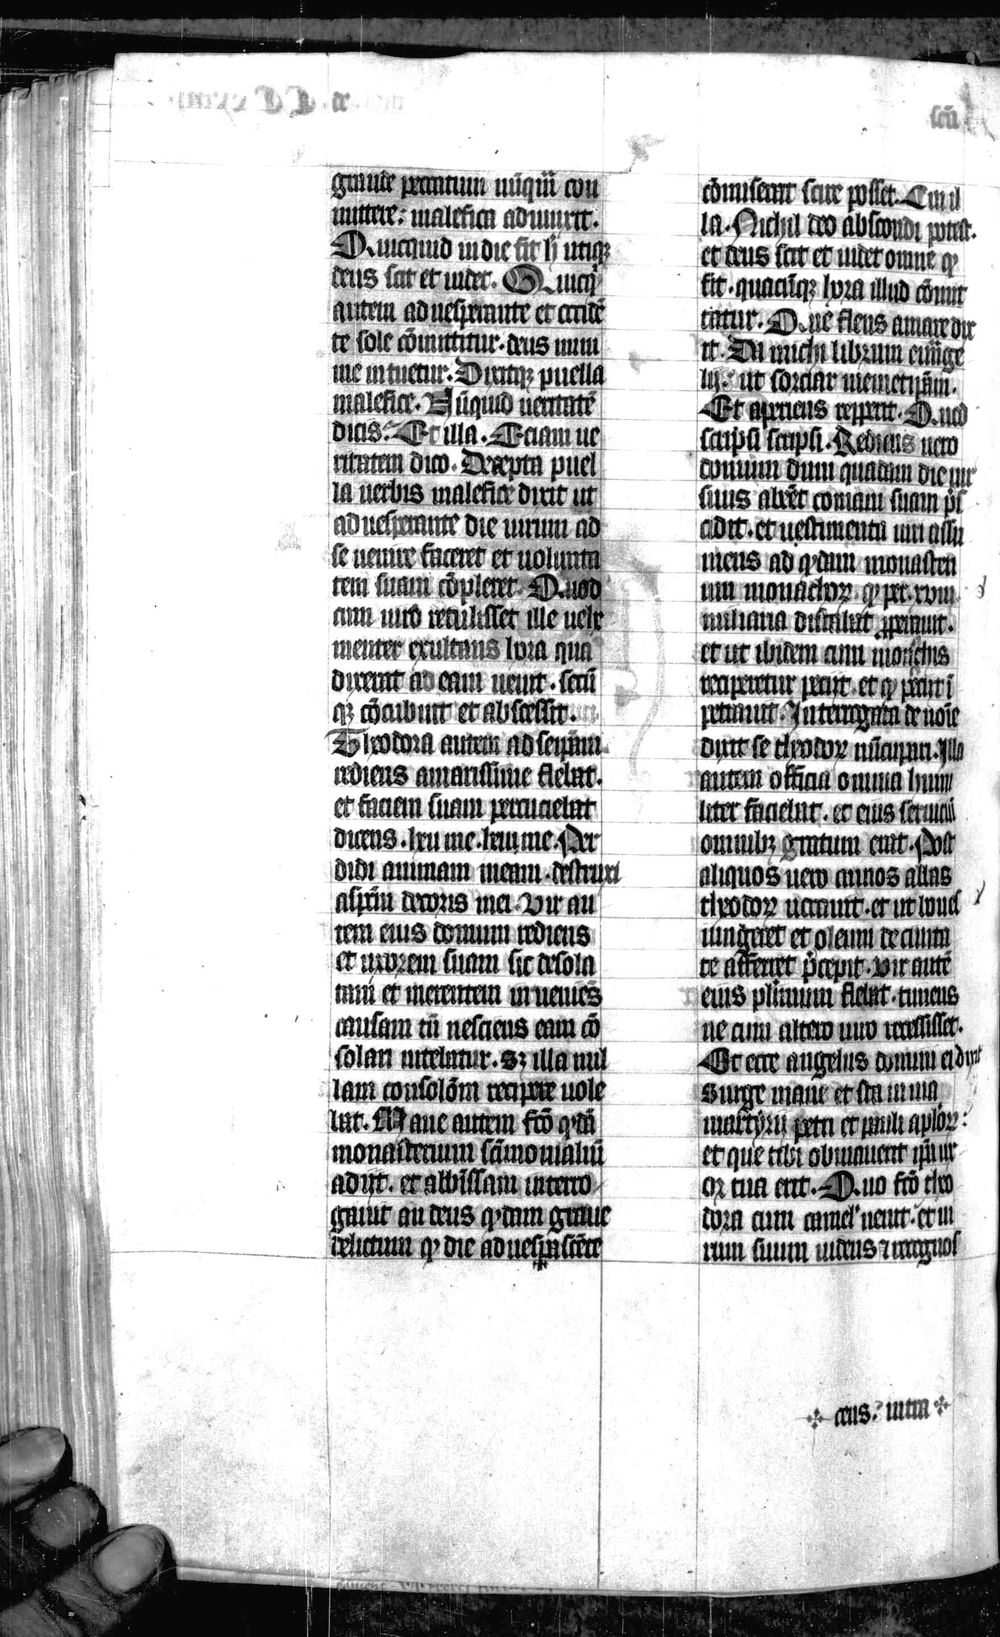 scā
graude peccatum nūqm̄ con
mittere: malefica adiunxit.
Quicquid in die fit hͦ utiqꝫ
deus scit et uidet. Quicqͥd
autem aduesperante et cidē
te sole cōmittitur. deus mini
me intuetur. Dixitqꝫ puella
malefice. Nūquid ueritatē
dicis. Et illa. Etiam ue
ritatem dico. Decepta puel
la uerbis malefice dixit ut
aduesperante die uirum ad
se uenire faceret et uolunta
tem suam cōpleret. Quod
cum uiro retulisset ille uehe
menter exultans hora qua
dixerat ad eam uenit. secū
qꝫ cōcubuit et abscessit.
Theodora autem ad seip̄am
rediens amarissime flebat.
et faciem suam percuciebat
dicens. heu me. heu me. Per
didi animam meam. destruxi
aspc̄m decoris mei. Vir au
tem eius domum rediens
et uxorem suam sic desola
tam et merentem inueniēs
causam tn̄ nesciens eam cō
solari nitebatur. Sꝫ illa nul
lam consolōm recipere uole
bat. Mane autem fcō qͣdā
monasterium sc̄imonialiū
adijt. et abbīssam interro
gauit an deus qͦdam graue
delictum qͦ die aduesp̄ascēte
cōmiserat scire posset. Cui il
la. Nichil deo abscondi potest.
et deus scit et uidet omne qͦ
fit. quacūqꝫ hora illud cōmit
tatur. Que flens amare dix
it. Da michi librum euūge
lij. ut sorciar memetip̄am.
Et aperiens repperit. Quod
scripsi scripsi. Rediens uero
domum dum quadam die uir
suus abēet comam suam p̄s
cidit. et uestimenta uiri assu
mens ad qͦdam monasteri
um monachoꝝ qͦ per. xviii
miliaria distabat ꝓperauit.
et ut ibidem cum monachis
reciperetur petijt. et qͦ petijt ī
petrauit. Interrogata de noīe
dixit se theodoꝝ nūcupari. Illa
autem officia omnia humi
liter faciebat. et eius seruiciū
omnibꝫ gratum erat. Post
aliquos uero annos abbas
theodoꝝ uocauit. et ut boues
iungeret et oleum de ciuita
te afferret p̄cepit. Vir autē
eius plimum flebat. timens
ne cum altero uiro recessisset.
Et ecce angelus domini ei dixit
Surge mane et sta in uia
martyrij petri et pauli apl̄oꝝ:
et que tibi obuiauerit ip̄a ux
or tua erit. Quo fcō theo
dora cum camel' uenit. et ui
rum suum uidens ⁊ recognos
cens. intra